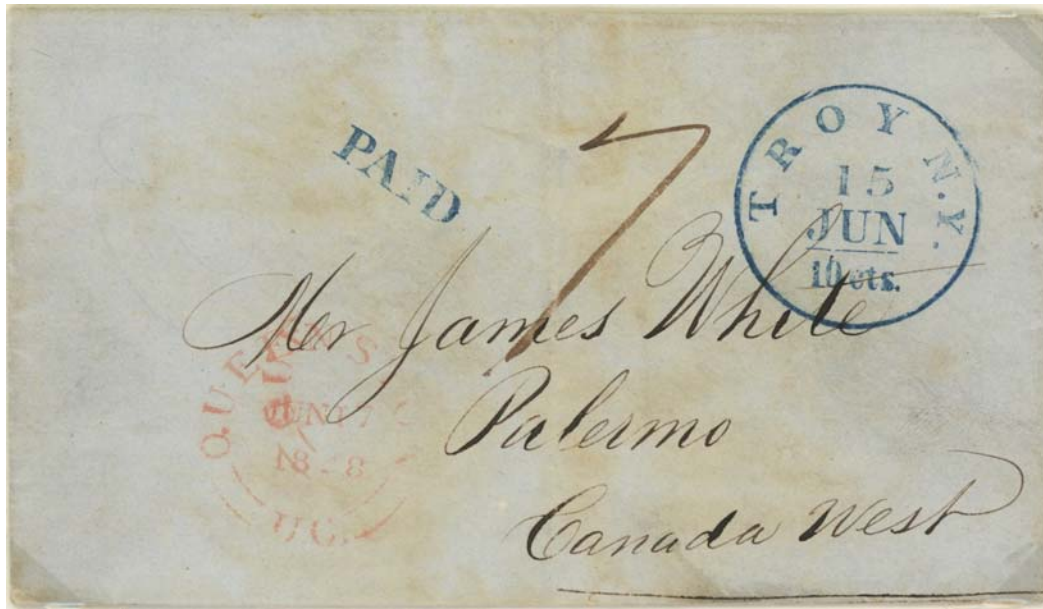 PAID
7
TROY N.Y.
15
JUN
10 cts.
Mr James White
Palermo
Canada West
JUN 17
U.C.